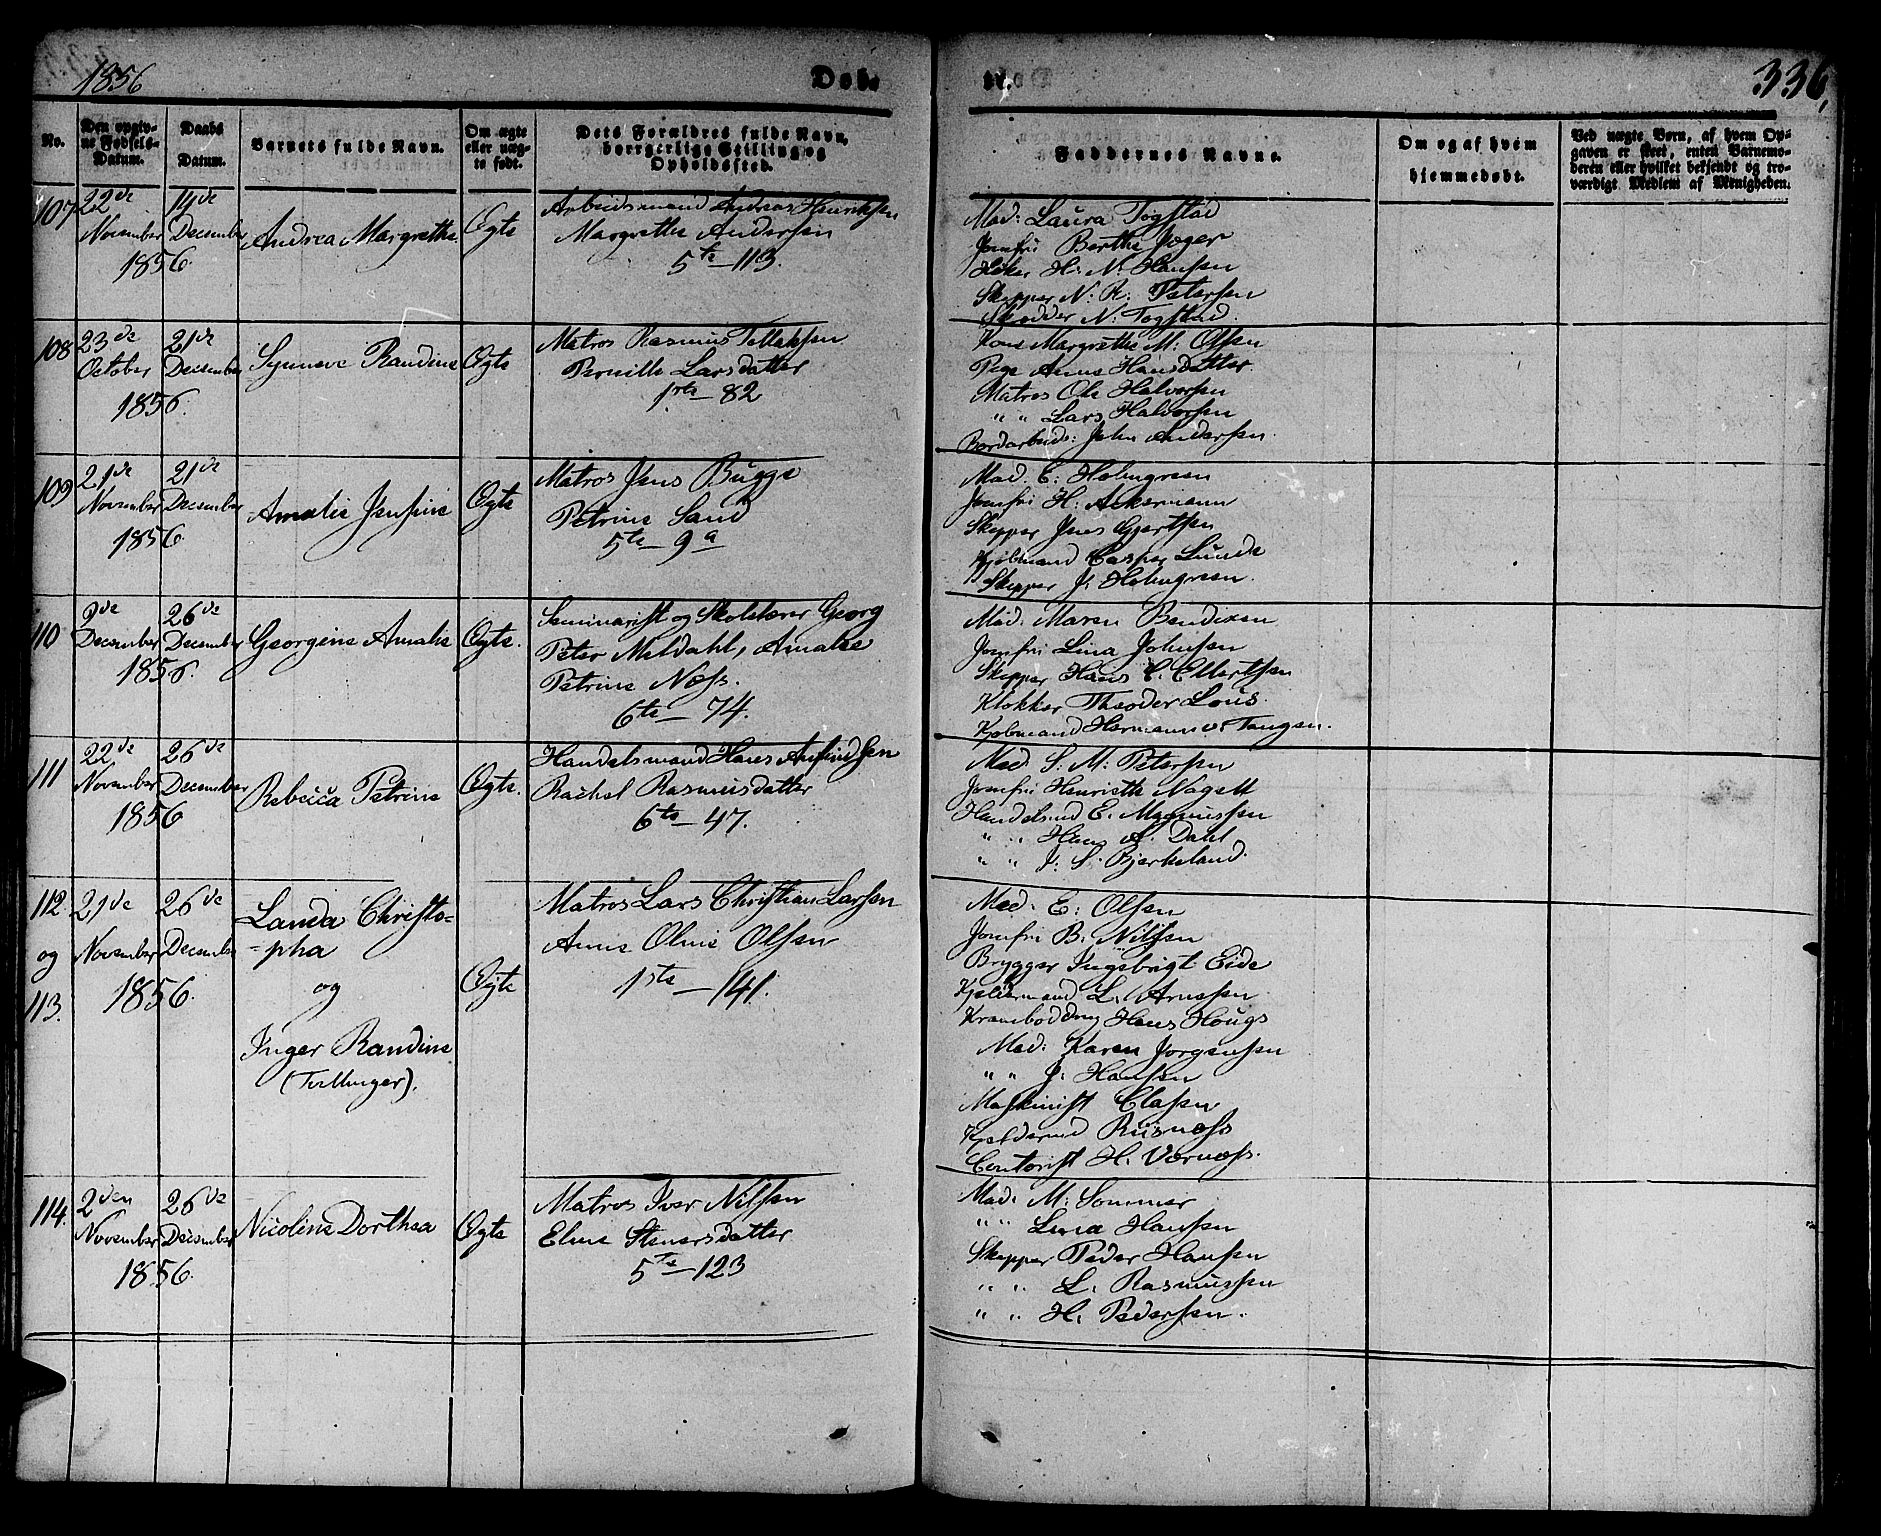 1856
Døb-
te.
336,
No.
Den opgiv-
ne Fødsels-
Datum.
Daabs
Datum.
Barnets fulde Navn.
Om ægte
eller uæg-
te født.
Dets Forældres fulde Navn,
borgerlige Stilling og
Opholdssted.
Faddernes Navne.
Om og af hvem
hjemmedøbt.
Ved uægte Børn, af hvem Op-
gaven er skeet, enten Barnemo-
deren eller hvilket bekjendt og tro-
værdigt Medlem af Menigheden.
107
22de
November
14de
December
1856
Andrea Margrethe
Ægte
Arbeidsmand Andreas Henriksen
Margrethe Andersen
5te – 113.
Mad: Laura Togstad
Jomfru Berthe Jæger
Høker H: N: Hansen
Skipper N: R: Petersen
Skrædder N: Togstad.
108
23de
October
21de
December
1856.
Synneve Randine
Ægte
Matros Rasmus Tollaksen
Pernille Larsdatter
1ste – 82
Kone Margrethe M: Olsen
Pige Anne Hansdatter
Matros Ole Halvorsen
" " Lars Halvorsen
Bordarbeid: John Andersen.
109
21de
November
21de
December
1856
Amalie Jensine
Ægte
Matros Jens Bugge
Petrine Sand
5te – 9a
Mad. E: Holmgreen
Jomfru H: Ackermann
Skipper Jens Gjertsen
Kjøbmand Casper Lunde
Skipper J: Holmgreen.
110
9de
December
26de
December
1856.
Georgine Amalie
Ægte.
Seminarist og Skolelærer Georg
Peter Meldahl, Amalie
Petrine Næss.
6te – 74.
Mad. Maren Bendixen
Jomfru Lina Johnsen
Skipper Hans C. Ellertsen
Klokker Theodor Lous.
Kjøbmand Hermann v: Tangen.
111
22de
November
26de
December
1856
Rebecca Petrine
Ægte.
Handelsmand Hans Anfindsen
Rachel Rasmusdatter
6te – 47.
Mad S. M: Petersen
Jomfru Henriette Nagell
Handelsmd E. Magnussen
" " Hans A. Dahl
" " J. S. Bjerkeland.
112
og
113.
21de
November
26de
December
1856.
Landa Christo=
=pha
og
Inger Randine
(Tvillinger).
Ægte
Matros Lars Christian Larsen
Anne Oline Olsen
1ste – 141.
Mad. E: Olsen
Jomfru B. Nilsen
Brygger Ingebrigt Eide
Kjeldermand L. Arnesen
Kramboddrng Hans Hougs
Mad: Karen Jørgensen
" " J. Hansen
Maskinist Clasen
Kjeldermd Riisnæss
Contorist H. Værnæss.
114.
2den
November
26de
December
1856.
Nicoline Dorthea
Ægte
Matros Iver Nilsen
Eline Stenersdatter
5te – 123
Mad. M. Sommer
" " Lina Hansen
Skipper Peder Hansen
" " L. Rasmussen
" " H. Pedersen.